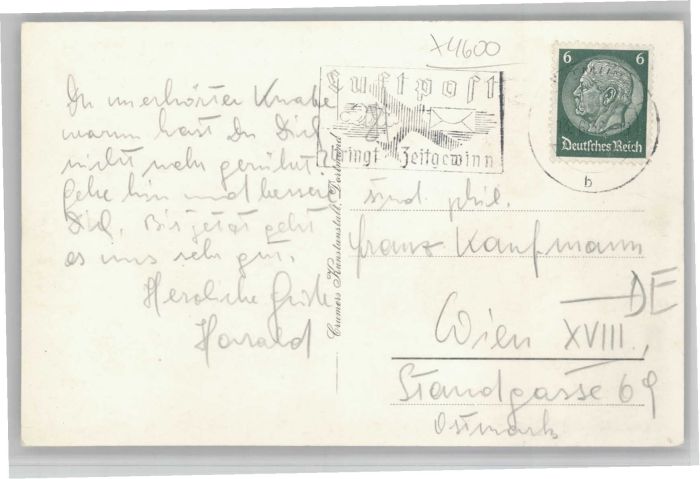 x4600
Luftpost
bringt Zeitgewinn
6 6
Deutsches Reich
b
Du unerhörter Knabe
warum hast Du Dich
nicht mehr gerührt.
Gehe hin und bessere
Dich. Bis jetzt geht
es uns sehr gut.
Herzliche Grüße
Harald
Cramers Kunstanstalt, Dortmund
stud. phil.
Franz Kaufmann
DE
Wien XVIII.,
Standgasse 69
Ostmark